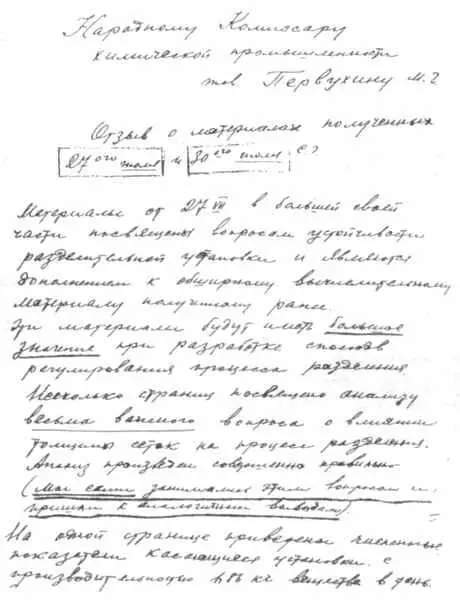 Народному Комиссару
химической промышленности
тов Первухину М.Г
Отзыв о материалах полученных
27ого июля и 30ого июля с?
Материалы от 27 VII в большей своей
части посвящены вопросам устойчивости
разделительной установки и являются
дополнением к обширному вычислительному
материалу полученному ранее.
Эти материалы будут иметь большое
значение при разработке способов
регулирования процесса разделения
Несколько страниц посвящено анализу
весьма важного вопроса о влиянии
толщины сеток на процесс разделения.
Анализ произведен совершенно правильно
(Мы сами занимались этим вопросом и
пришли к аналогичным выводам)
На одной странице приведены численные
показатели касающиеся установки с
производительностью кг вещества в день.